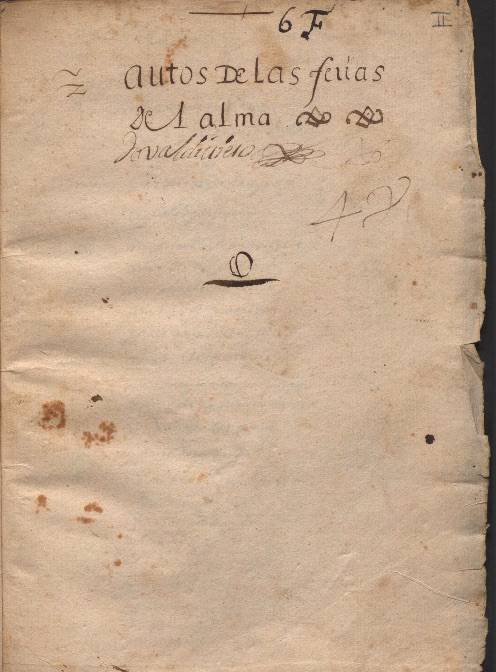 6 F
II
autos De Las ferias
de l alma
De valdivielso